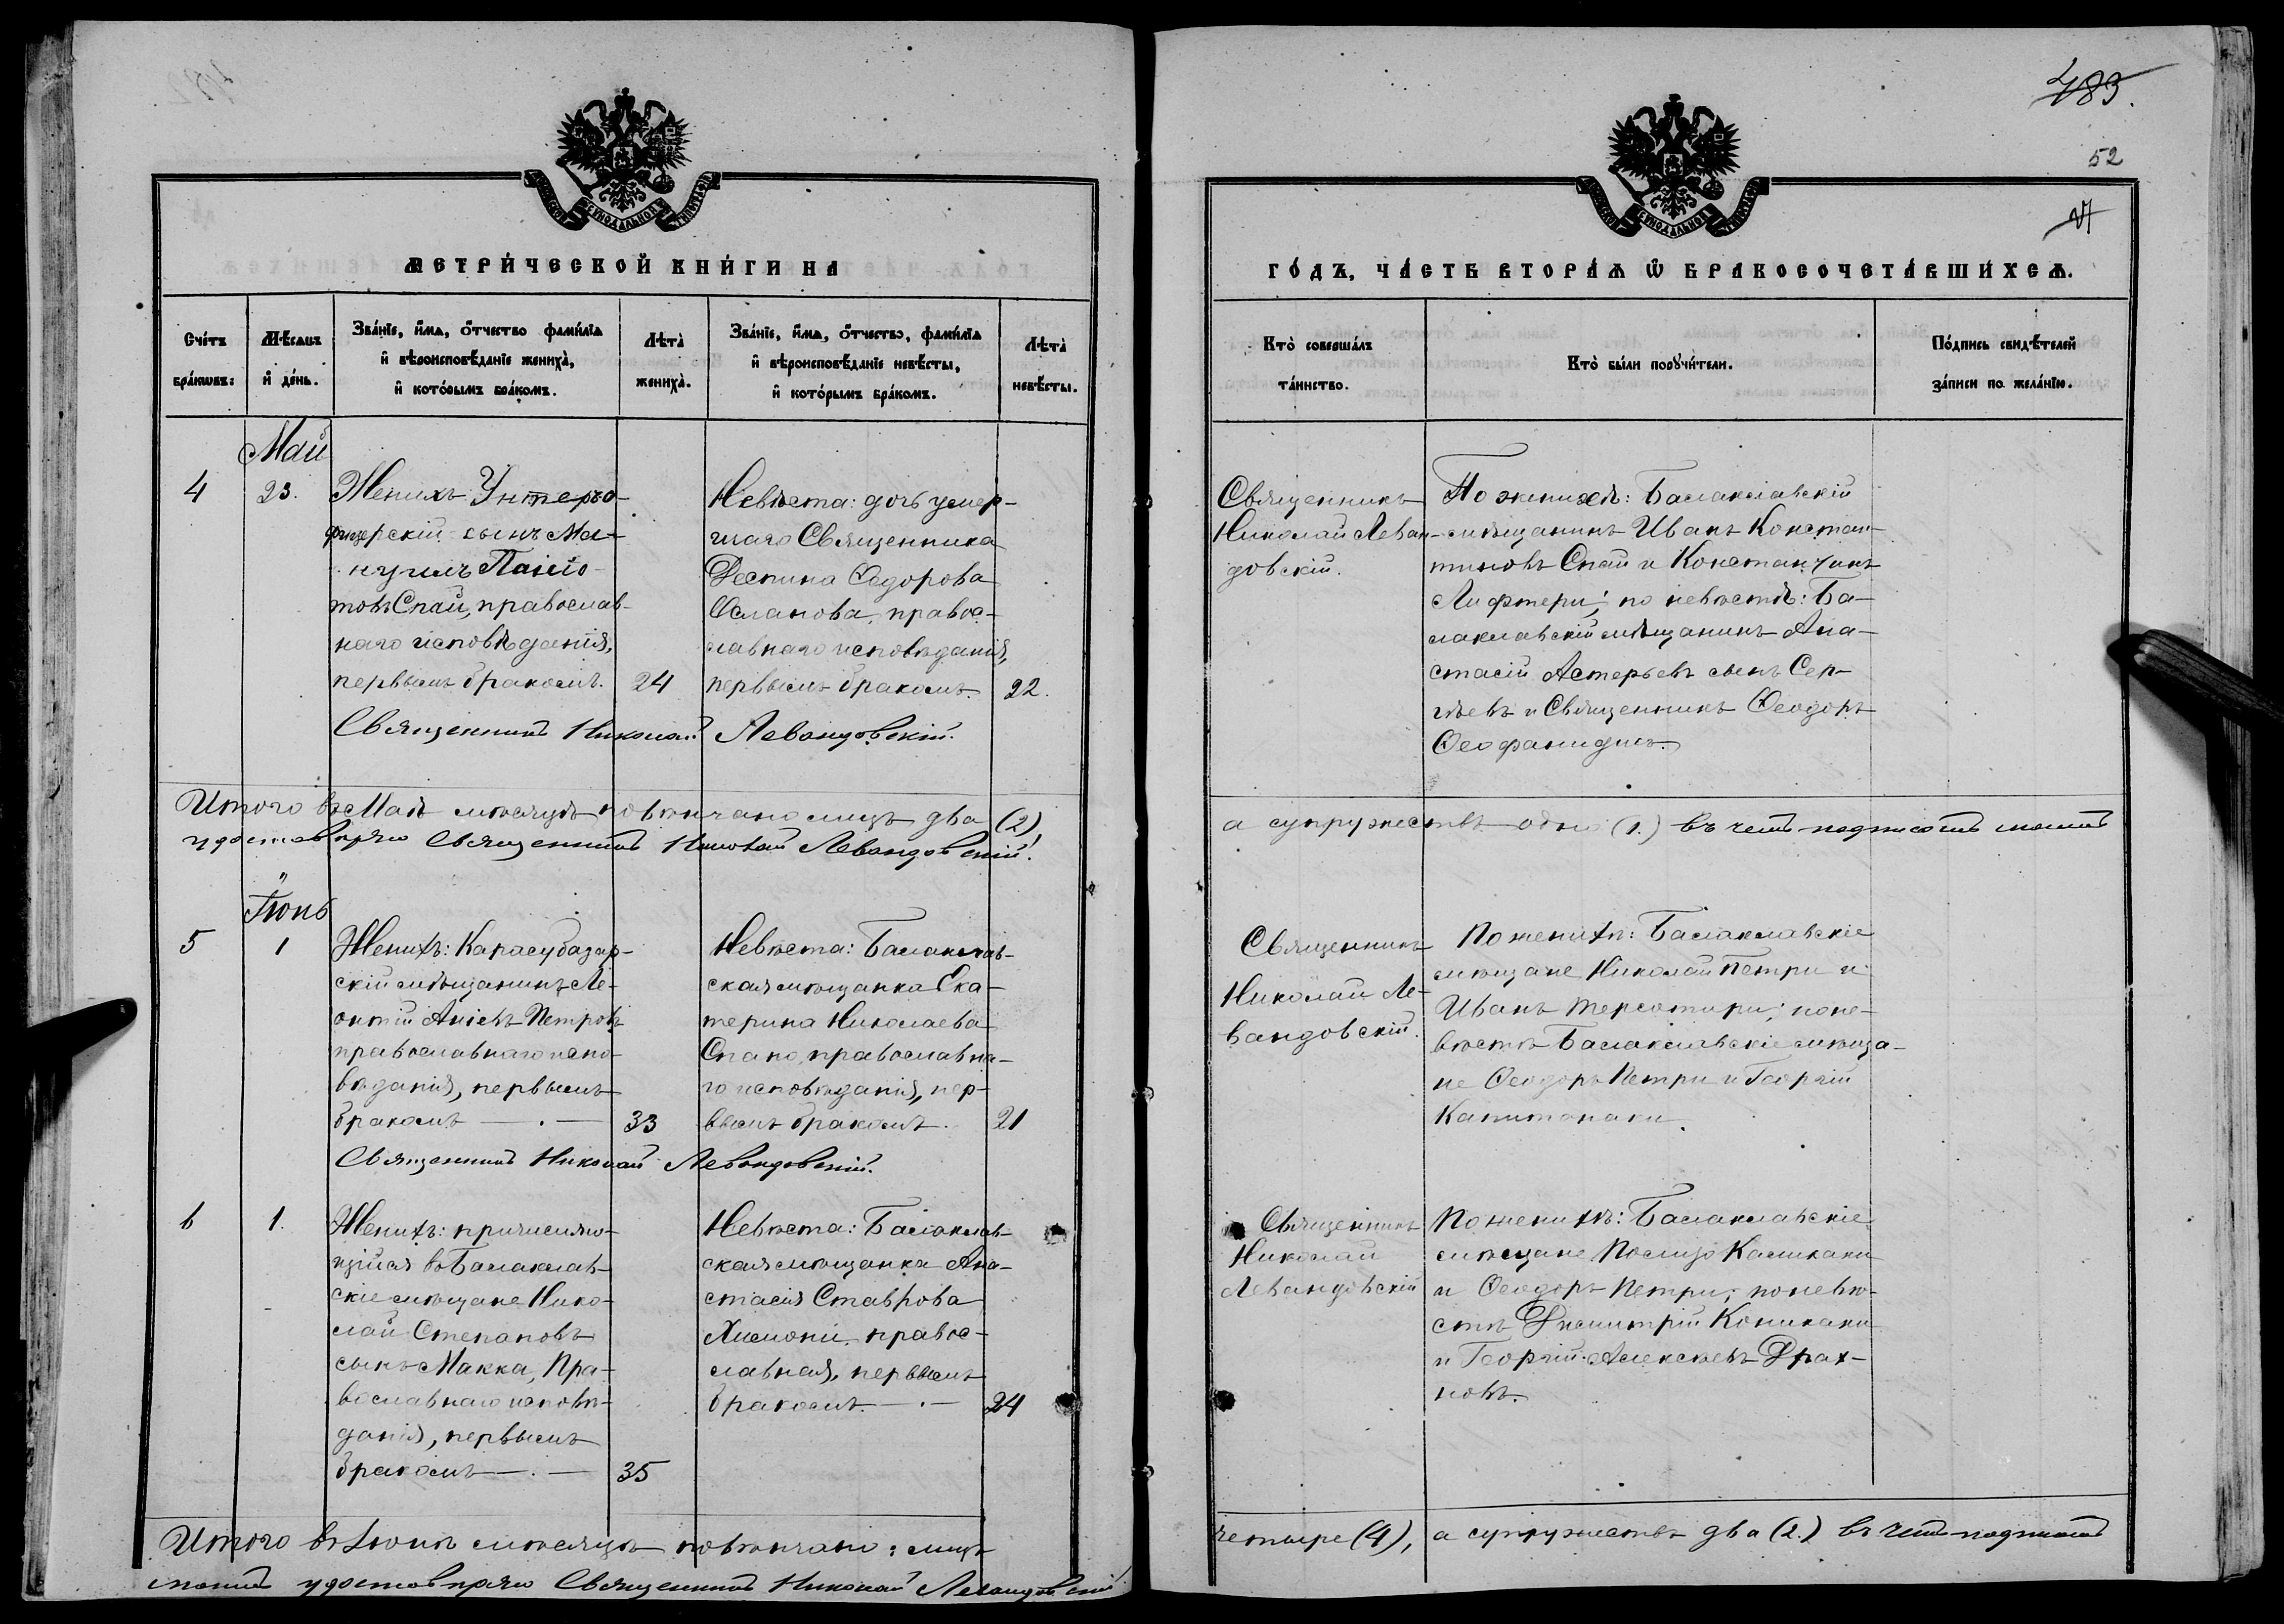 483.
52
МЕТРИ́ЧЕСКОЙ КНИ́ГИ НА
Сче́тъ бра́кѡвъ:
Мѣ́сѧцъ и҆ де́нь.
Зва́нїе, и҆́мѧ, ѻ҆́тчество фами́лїѧ
и҆ вѣроисповѣ́данїе жениха̀,
и҆ кото́рымъ бра́комъ.
Лѣта̀ жениха̀.
Зва́нїе, и҆́мѧ, ѻ҆́тчество, фами́лїѧ
и҆ вѣроисповѣ́данїе невѣ́сты,
и҆ кото́рымъ бра́комъ.
Лѣта̀ невѣ́сты.
Май
4
23.
Женихъ: Унтеръо-
фицерскій сынъ Ма-
нуилъ Панаіо-
товъ Спай, православ-
наго исповѣданія,
первымъ бракомъ.
24
Невѣста: дочь умер-
шаго Священника
Деспина Ѳедорова
Ѳсланова, правос-
лавнаго исповѣданія,
первымъ бракомъ.
22.
Священникъ Николай Левандовскій.
Итого въ Маѣ мѣсяцѣ повѣнчано лицъ два (2),
удостовѣряю Священникъ Николай Левандовскій.
Іюнь
5
1
Женихъ: Карасубазар-
скій мѣщанинъ Ле-
онтій Аніевъ Петровъ
православнаго испо-
вѣданія, первымъ
бракомъ
33
Невѣста: Балаклав-
ская мѣщанка Ека-
терина Николаева
Спано, православна-
го исповѣданія, пер-
вымъ бракомъ.
21
Священникъ Николай Левандовскій.
6
1.
Женихъ: причисляю-
щійся въ Балаклав-
скіе мѣщане Нико-
лай Степановъ
сынъ Макка, Пра-
вославнаго исповѣ-
данія, первымъ
бракомъ
35
Невѣста: Балаклав-
ская мѣщанка Ана-
стасія Ставрова
Химони, правос-
лавная, первымъ
бракомъ.
24
Итого въ Іюнѣ мѣсяцѣ повѣнчано: лицъ
моимъ удостовѣряю Священникъ Николай Левандовскій
ГО́ДЪ, ЧА́СТЬ ВТОРА́Ѧ Ѽ БРАКОСОЧЕТА́ВШИХСѦ.
Кто̀ соверша́лъ
та́инство.
Кто̀ бы́ли порꙋчи́тели.
По́дпись свидѣ́телей
за́писи по жела́нїю.
Священникъ
Николай Леван-
довскій.
По женихѣ: Балаклавскій
мѣщанинъ Иванъ Констан-
тиновъ Спай и Константинъ
Лифтери; по невѣстѣ: Ба-
лаклавскій мѣщанинъ Ана-
стасій Астерьевъ сынъ Сер-
гѣевъ и Священникъ Ѳеодоръ
Ѳеофанидисъ.
а супружествъ одно (1.) въ чемъ подписомъ моимъ
Священникъ
Николай Ле-
вандовскій.
По женихѣ: Балаклавскіе
мѣщане Николай Петри и
Иванъ Терсотири; по не-
вѣстѣ Балаклавскіе мѣща-
не Ѳеодоръ Петри и Георгій
Капитанаки.
Священникъ
Николай
Левандовскій
По женихѣ: Балаклавскіе
мѣщане Полизо Каликаки
и Ѳеодоръ Петри; по невѣ-
стѣ Дмитрій Коникаки
и Георгій Алексѣевъ Драх-
новъ.
четыре (4), а супружествъ два (2.) въ чемъ подписомъ